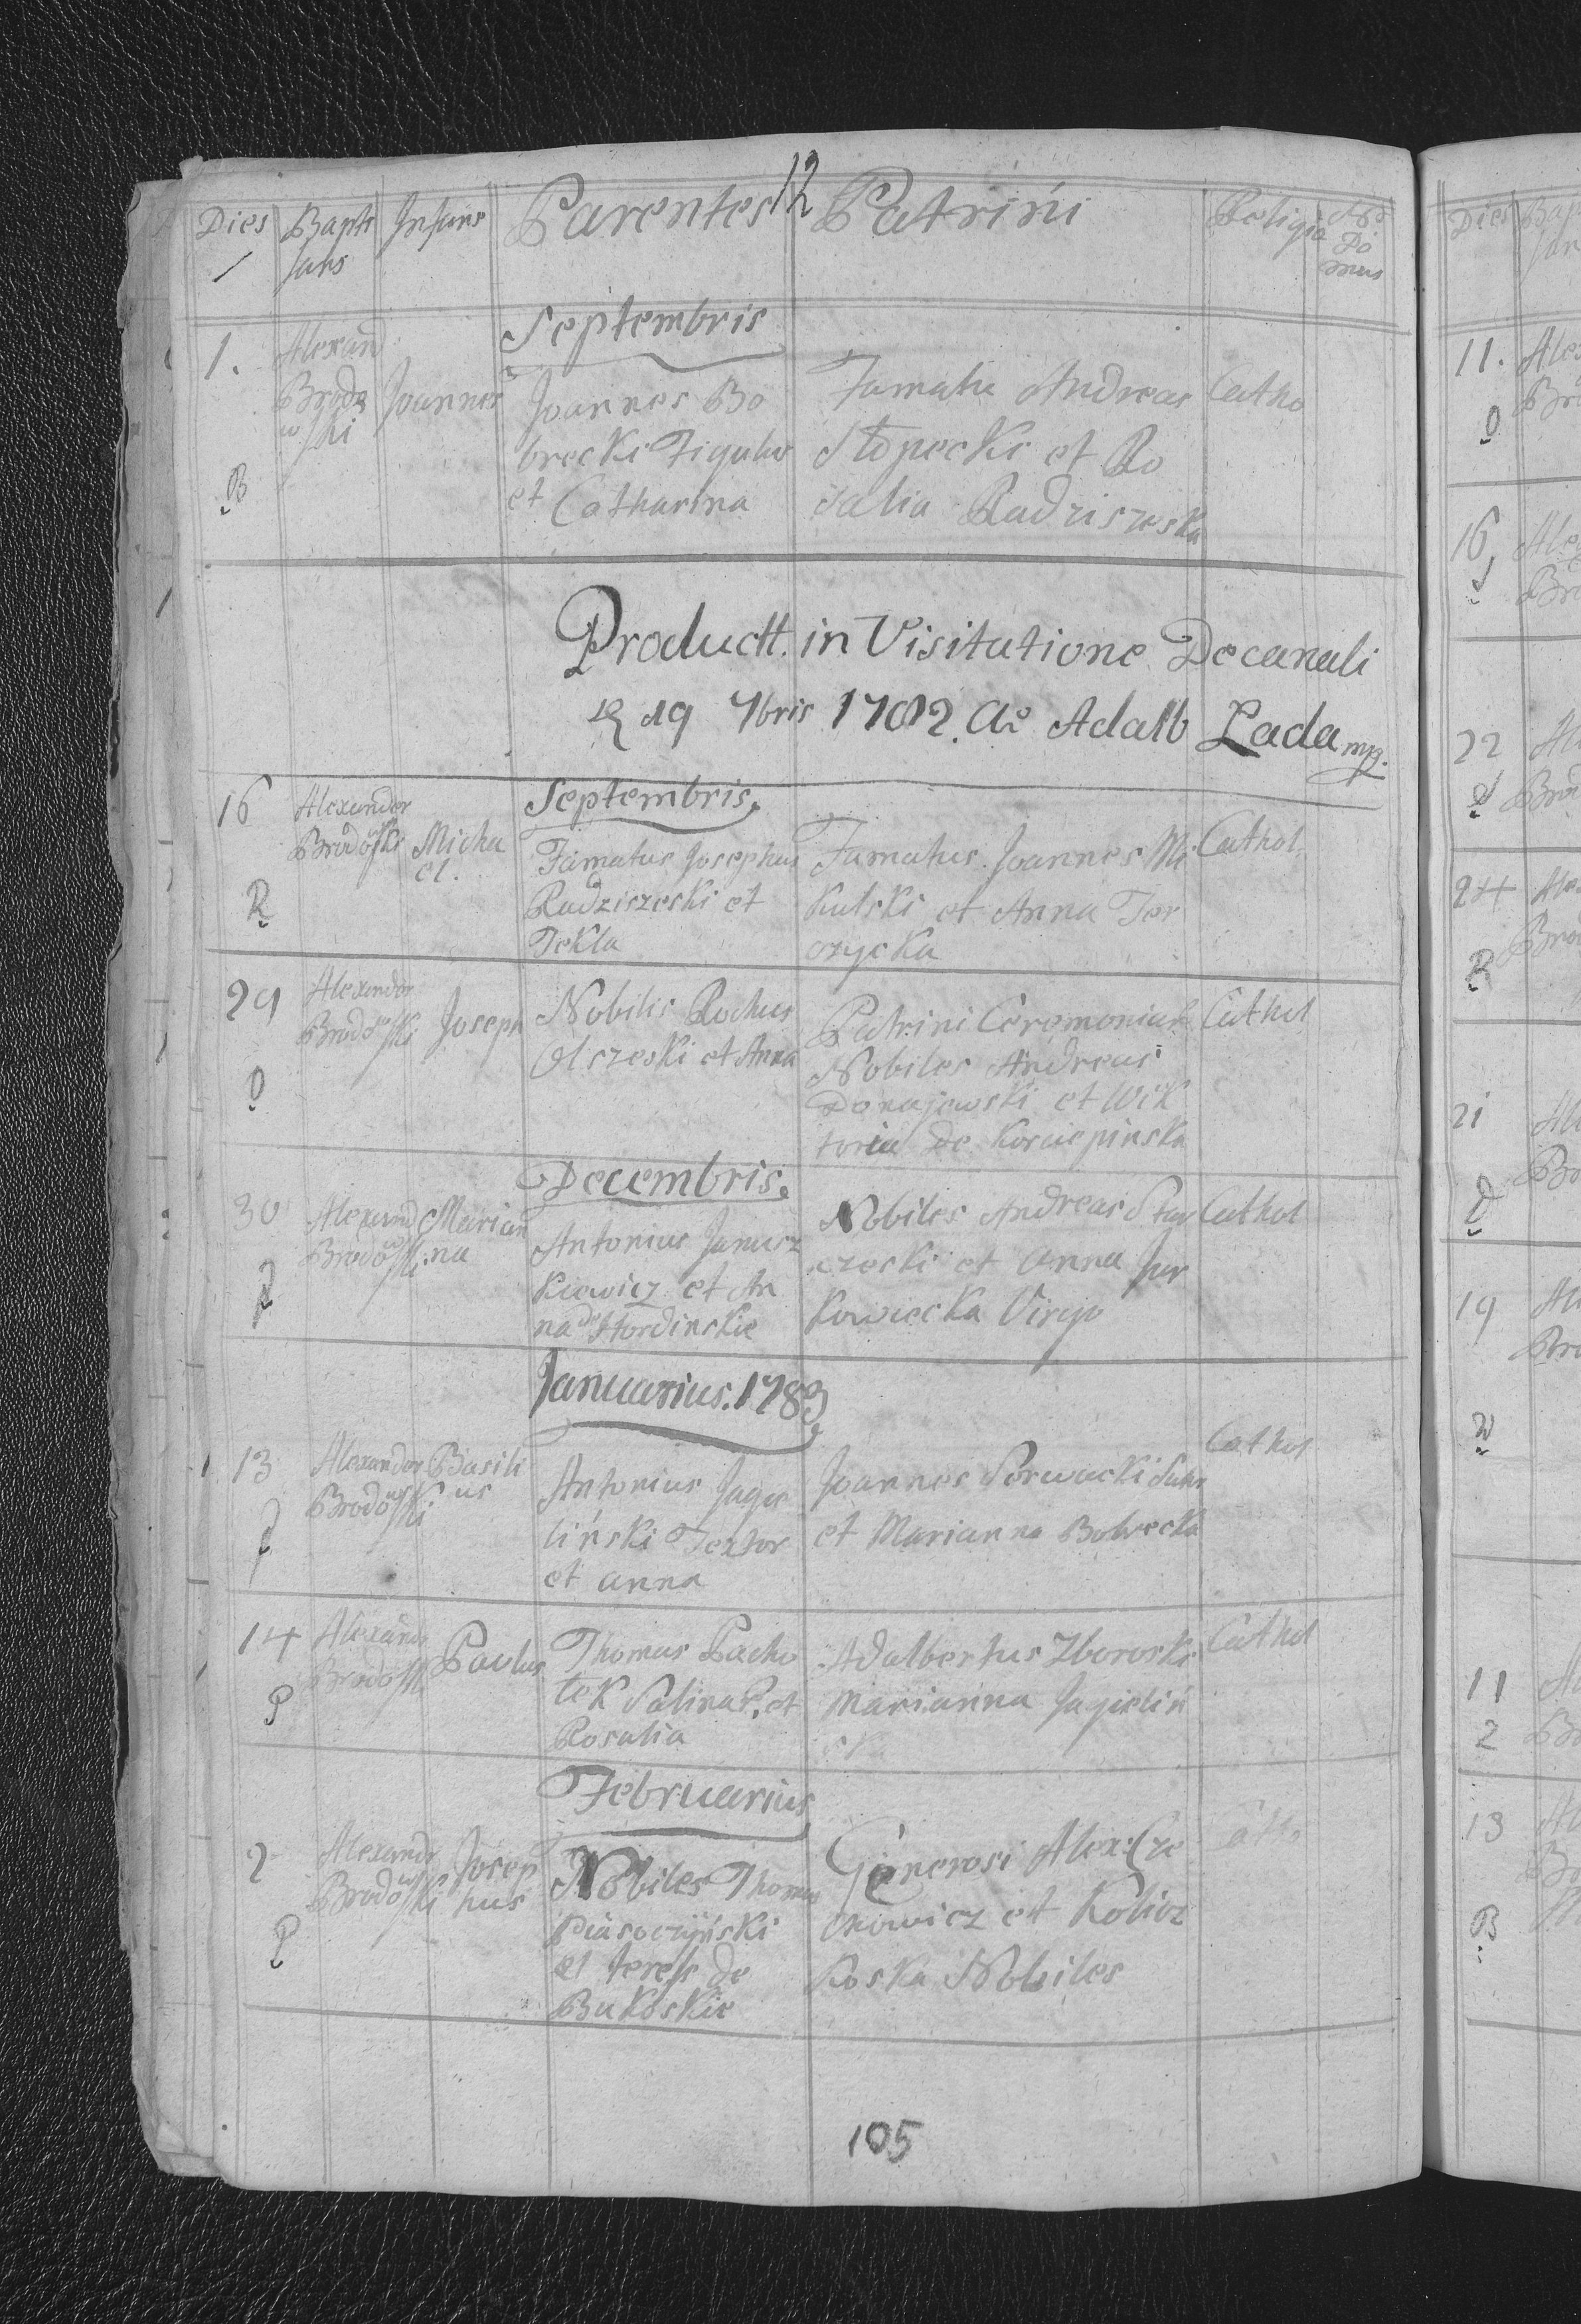 12
Dies Baptisans Infans Parentes Patrini Religio Nro Domus
Septembris
1. Alexan Brodowski Joannes
Joannes Bo
brecki Figulus
et Catharina
Famati Andreas
Stopecki et Ro
salia Radziszeska
Catho
B
Productt. in Visitatione Decanali
19 7bris 1782. Ao Adalb Lada mp.
Septembris
16 Alexander Brodowski Micha
el.
Famatus Josephus
Radziszeski et
Tekla
Famatus Joannes Mi
kulski et Anna Ter
czycka
Cathol
R
29 Alexander Brodowski Joseph
Nobilis Rochus
Olszeski et Anna
Patrini Ceremoniat
Nobiles Andreas
Donajewski et Wik
toria de Korciepinska
Cathol
O
Decembris.
30 Alexand Brodowski Marian
na
Antonius Janusz
kiewicz et An
na de Hordinskie
Nobiles Andreas Star
czeski et Anna Jur
kowiecka Virgo
Cathol
Januarius. 1783
13 Alexander Brodowski Basili
us
Antonius Jagie
liński Textor
et Anna
Joannes Serwacki Sutor
et Marianna Bobrecka
Cathol
14 Alexand Brodoski Paulus
Thomas Pacho
tek Salina P. et
Rosalia
Adalbertus Zboroski
Marianna Jagieliń
sk
Cathol
P
Februarius
2 Alexandr Brodowski Josep
hus
Nobiles Thomas
Piasoczyński
et Teress de
Bukoskie
Generosi Alex: Cze
chowicz et Kolicz
koska Nobiles
Cath
P
105
Dies
11.
O
16
22
24
R
21
19
11
2
13
B